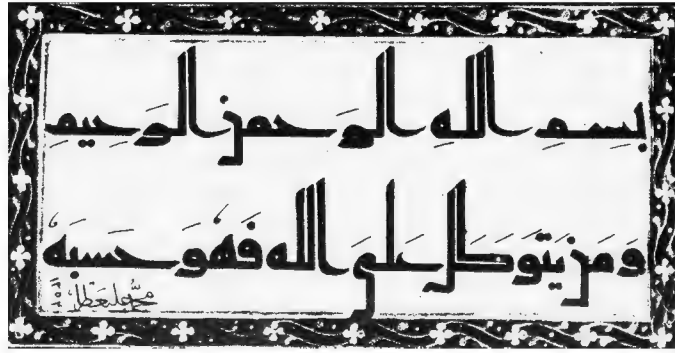 بِسمِ اللهِ الرَحمنِ الرَحِيمِ
وَمَن يَتَوَكَل عَلَى الله فَهُوَ حَسبَهُ